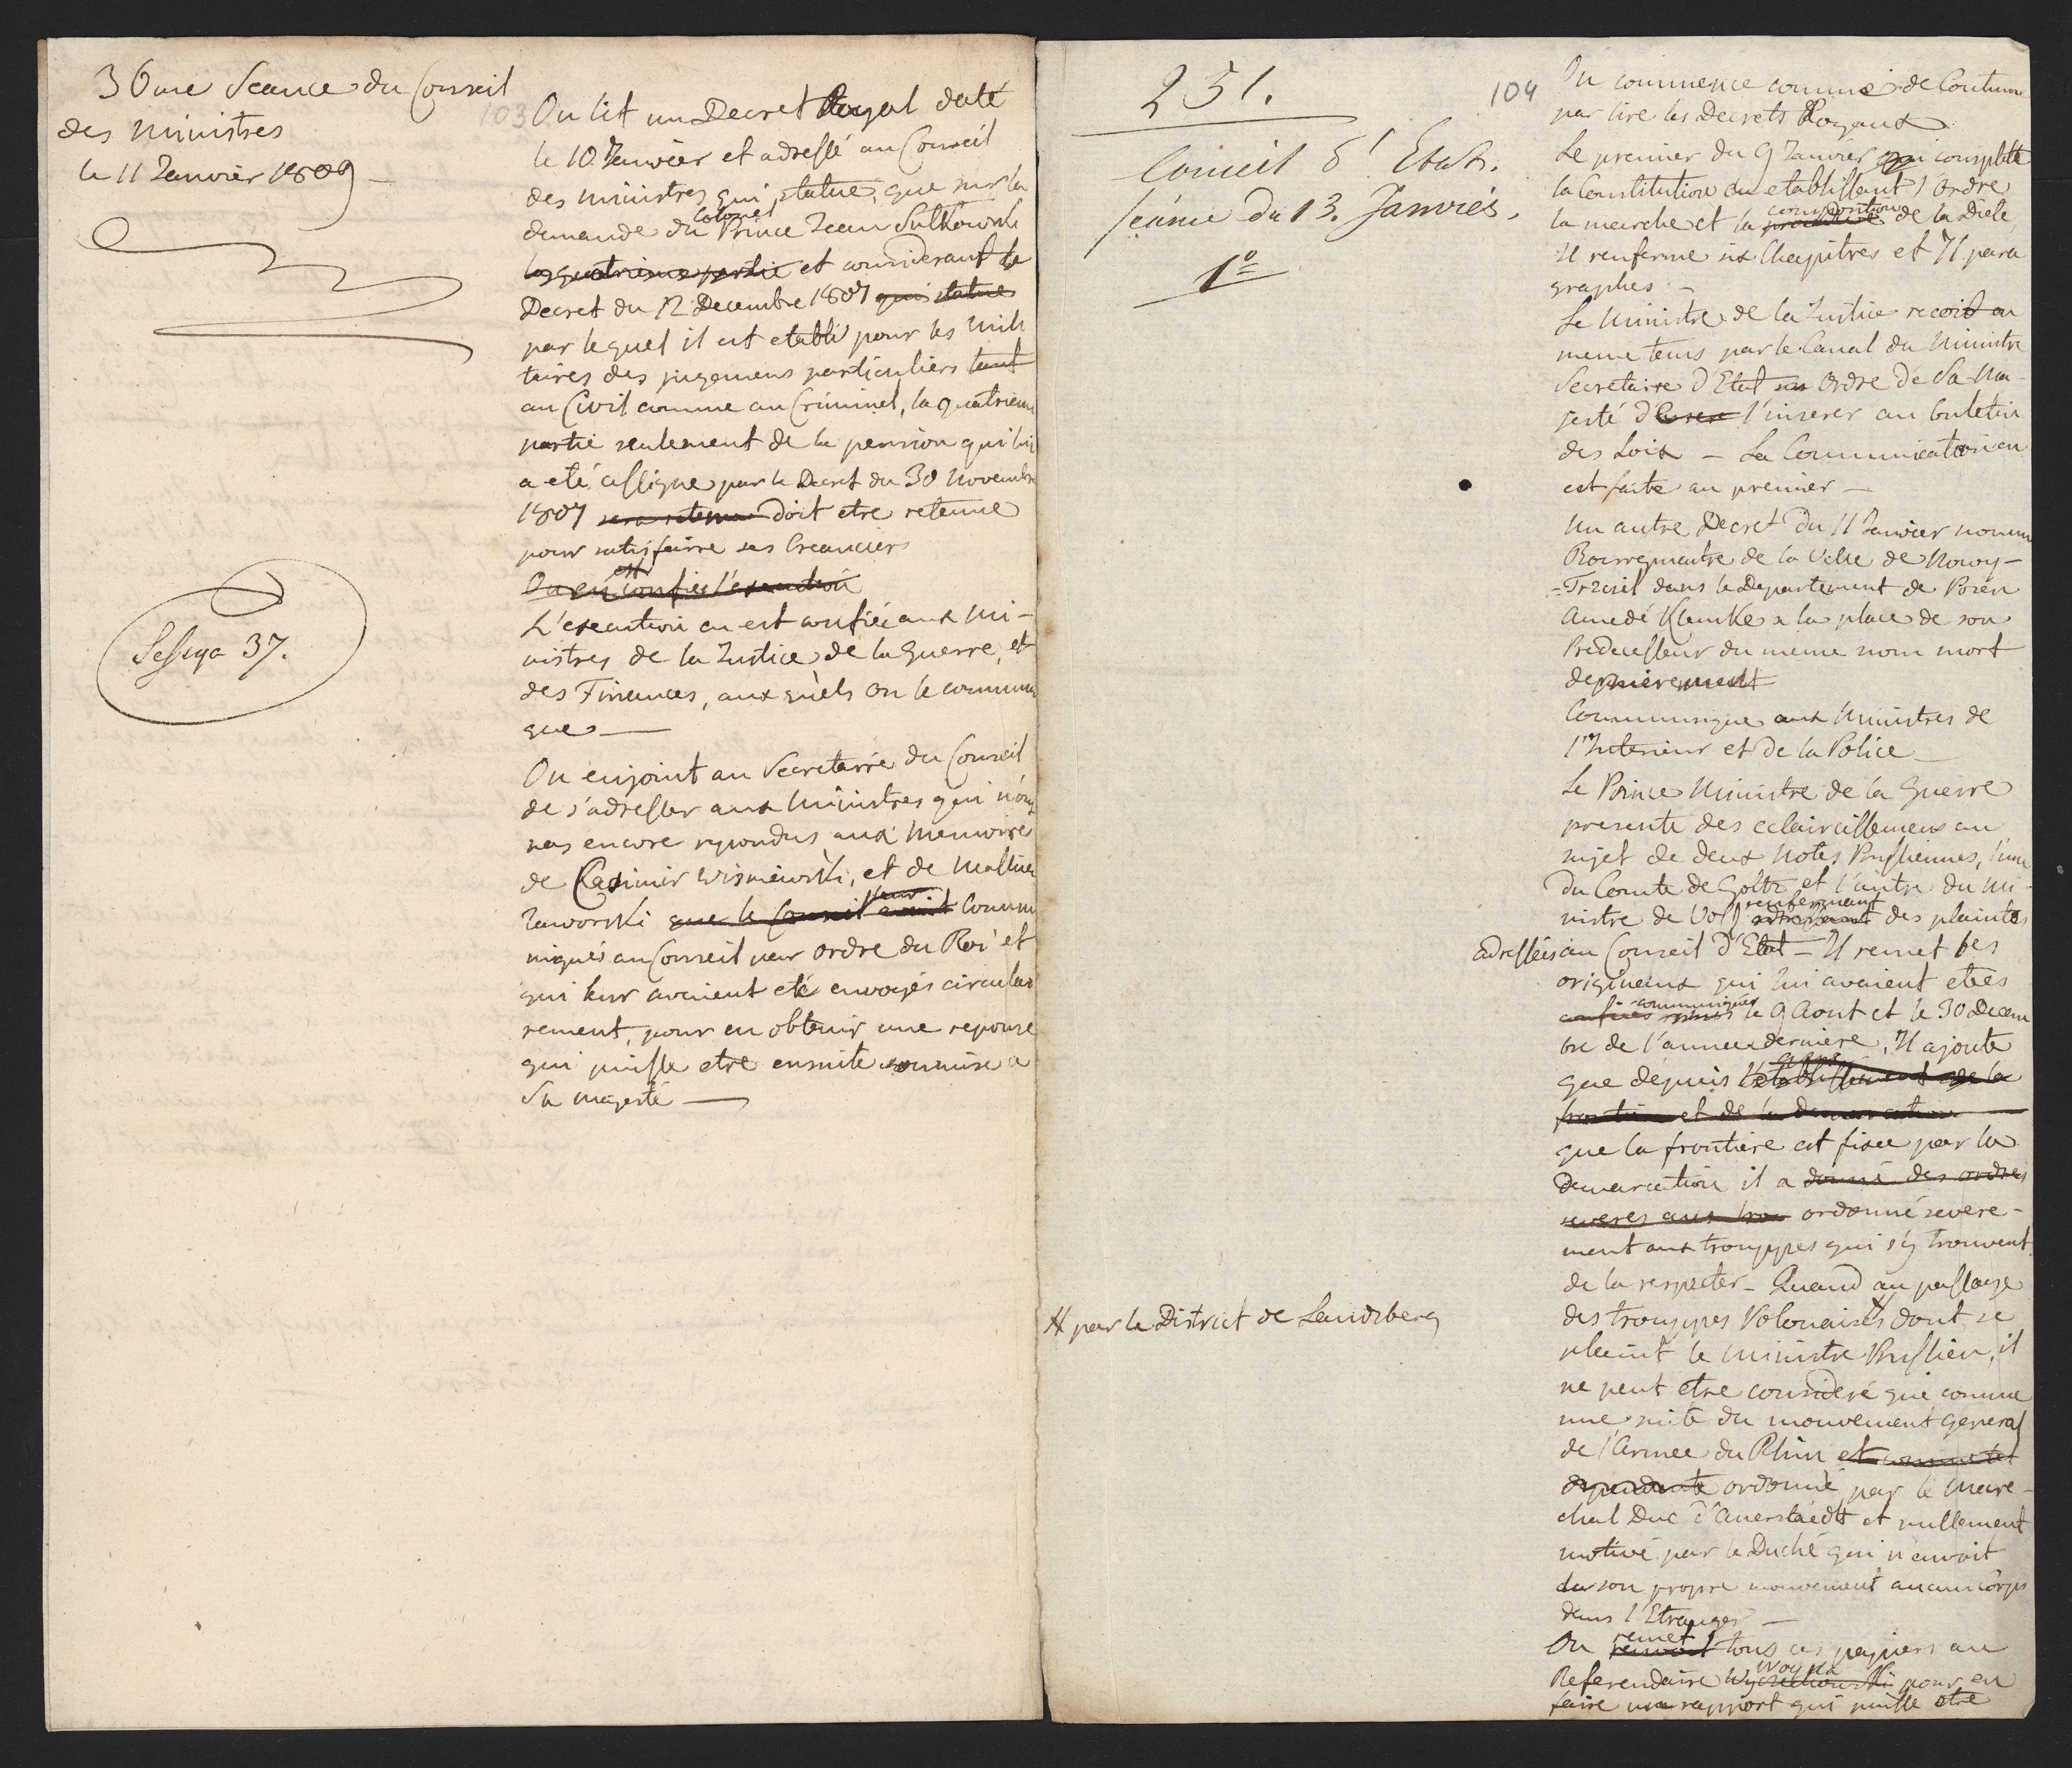 36me Seance du Conseil
des Ministres
le 11 Janvier 1809 —
Sessya 37.
103
On lit un Decret Royal daté
le 10. Janvier et adressé au Conseil
des Ministres qui statue, que sur la
Colonel
demande du Prince Jean Sulkowski
la quatrieme partie et considerant le
Decret du 12 Decembre 1807 qui statue
par lequel il est etabli pour les mili
taires des jugemens particuliers tant
au Civil comme au Criminel, la quatrieme
partie seulement de la pension qui lui
a eté assigne par le Decret du 30 Novembre
1807 sera retenue doit etre retenue
pour satisfaire ses Creanciers
est
On en confie l'execution
L'execution en est confiée aux Mi-
nistres de la Justice de la Guerre, et
des Finances, aux quels on le communi
que —
On enjoint au Secretaire du Conseil
de s'adresser aux Ministres qui n'ont
pas encore repondus aux Memoires
de Casimir Wisniewski, et de Mathieu
Jaworski que le Conseil avoit Commu
niqués au Conseil par ordre du Roi et
qui leur avaient eté envoyés circulai
rement, pour en obtenir une reponse
qui puisse etre ensuite soumise a
Sa Majesté —
251.
Conseil d'Etat.
Séance du 13. Janvier.
1º
104
On commence comme de Coutume
par lire les Decrets Royaux
Le premier du 9 Janvier qui complette
la Constitution en etablissant l'ordre
composition
la marche et la procedure de la Diete
Il renferme six Chapitres et 71 para
graphes. —
Le Ministre de la Justice recoit en
meme tems par le Canal du Ministre
Secretaire d'Etat un Ordre de Sa Ma-
jesté d' l'inserer au buletin
des Loix — La Communication en
est faite au premier —
Un autre Decret du 11 Janvier nomme
Bourguemestre de la Ville de Nowy-
-Trzciel dans le Departement de Posen
Amedé Klemke a la place de son
Predecesseur du meme nom mort
dernierement
Communiqué aux Ministres de
l'Interieur et de la Police —
Le Prince Ministre de la Guerre
presente des eclaircissemens au
sujet de deux Notes Prussiennes, l'une
du Comte de Goltz et l'autre du Mi-
renfermant
nistre de Voss des plaintes
adressées au Conseil d'Etat — Il remet les
originaux qui lui avaient etées
communiqués
confiés remis le 9 Aout et le 30 Decem
bre de l'année derniere. Il ajoute
que depuis l'etablissement de la
frontiere et de la Demarcation
que la frontiere est fixée par la
Demarcation il a donné des ordres
severes aux trou ordonné severe-
ment aux trouppes qui s'y trouvent
de la respecter — Quand au passage
des trouppes Polonaises # dont se
plaint le Ministre Prussien, il
# par le District de Landsberg
ne peut etre consideré que comme
une suite du mouvement general
de l'Armee du Rhin et comme tel
dependante ordonné par le Mare-
chal Duc d'Auerstaedt et nullement
motivé par le Duché qui n'envoit
de son propre mouvement aucun corps
dans l'Etranger —
remet
On renvoit tous ces papiers au
Woyda
Referendaire Wyczechowski pour en
faire un rapport qui puisse etre